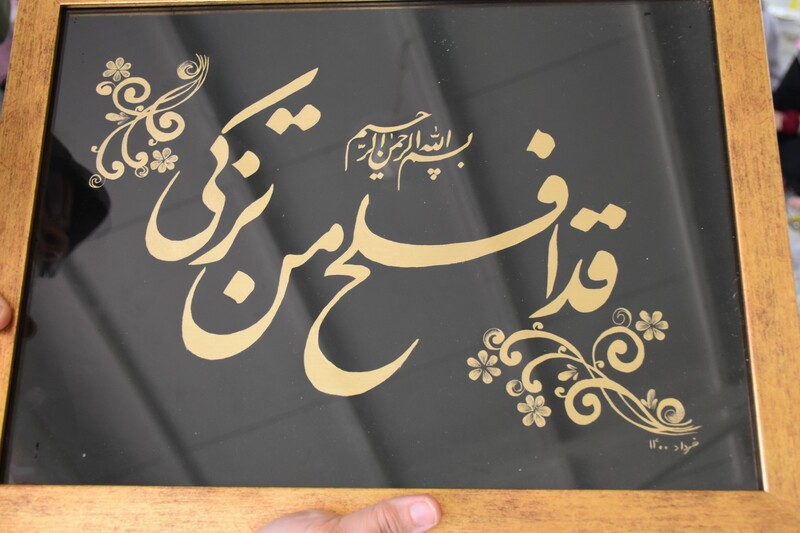 بسم الله الرحمن الرحیم
قد افلح من تزکی
خرداد ۱۴۰۰